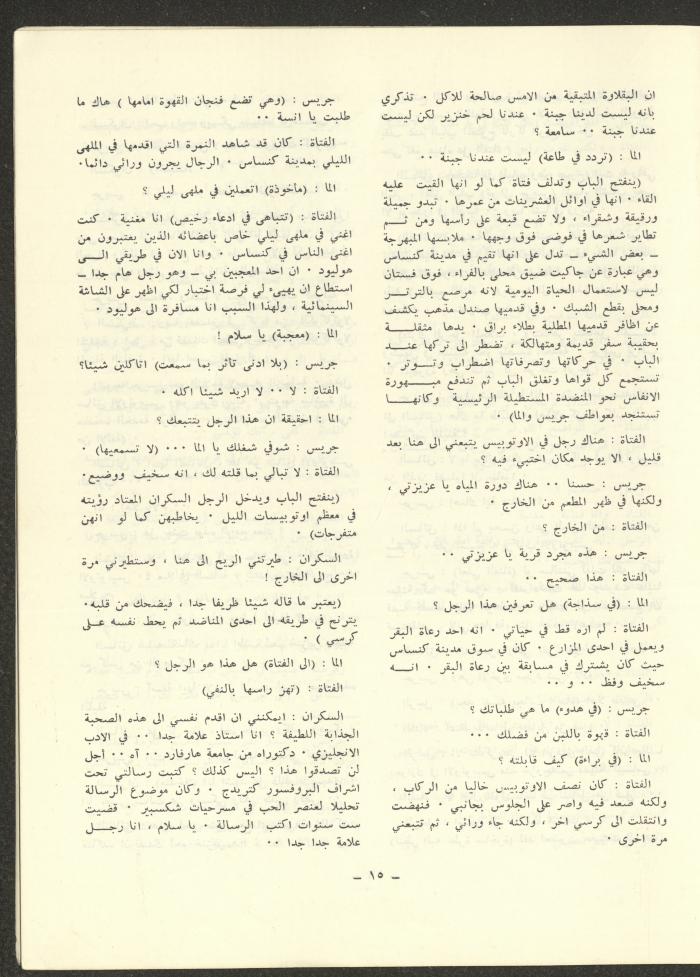 ان البقلاوة المتبقية من الامس صالحة للاكل ٠ تذكري
بانه ليست لدينا جبنة ٠ عندنا لحم خنزير لكن ليست
عندنا جبنة ٠٠ سامعة ؟
الما : (تردد في طاعة) ليست عندنا جبنة ٠٠
(ينفتح الباب وتدلف فتاة كما لو انها القيت عليه
القاء ٠ انها في اوائل العشرينات من عمرها ٠ تبدو جميلة
ورقيقة وشقراء ، ولا تضع قبعة على رأسها ومن ثم
تطاير شعرها في فوضى فوق وجهها ٠ ملابسها المبهرجة
ـ بعض الشيء ـ تدل على انها تقيم في مدينة كنساس
وهي عبارة عن جاكيت ضيق محلى بالفراء ، فوق فستان
ليس لاستعمال الحياة اليومية لانه مرصع بالترتر
ومحلى بقطع الشبك ٠ وفي قدميها صندل مذهب يكشف
عن اظافر قدميها المطلية بطلاء براق ٠ يدها مثقلة
بحقيبة سفر قديمة ومتهالكة ، تضطر الى تركها عند
الباب ٠ في حركاتها وتصرفاتها اضطراب وتوتر ٠
تستجمع كل قواها وتغلق الباب ثم تندفع مبهورة
الانفاس نحو المنضدة المستطيلة الرئيسية وكانها
تستنجد بعواطف جريس والما) ٠
الفتاة : هناك رجل في الاوتوبيس يتبعني الى هنا بعد
قليل ، الا يوجد مكان اختبيء فيه ؟
جريس : حسنا ٠٠ هناك دورة المياه يا عزيزتي ،
ولكنها في ظهر المطعم من الخارج ٠
الفتاة : من الخارج ؟
جريس : هذه مجرد قرية يا عزيزتي ٠٠
الفتاة : هذا صحيح ٠٠
الما : (في سذاجة) هل تعرفين هذا الرجل ؟
الفتاة : لم اره قط في حياتي ٠ انه احد رعاة البقر
ويعمل في احدى المزارع ٠ كان في سوق مدينة كنساس
حيث كان يشترك في مسابقة بين رعاة البقر ٠ انه
سخيف وفظ ٠٠ و ٠٠
جريس : (في هدوء) ما هي طلباتك ؟
الفتاة : قهوة باللبن من فضلك ٠٠٠
الما : (في براءة) كيف قابلته ؟
الفتاة : كان نصف الاوتوبيس خاليا من الركاب ،
ولكنه صعد فيه واصر على الجلوس بجانبي ٠ فنهضت
وانتقلت الى كرسي اخر ، ولكنه جاء ورائي ، ثم تتبعني
مرة اخرى ٠
جريس : (وهي تضع فنجان القهوة امامها ) هاك ما
طلبت يا انسة ٠٠
الفتاة : كان قد شاهد النمرة التي اقدمها في الملهى
الليلي بمدينة كنساس ٠ الرجال يجرون ورائي دائما٠
الما : (مأخوذة) اتعملين في ملهى ليلي ؟
الفتاة : (تتباهى في ادعاء رخيص) انا مغنية ٠ كنت
اغني في ملهى ليلي خاص باعضائه الذين يعتبرون من
اغنى الناس في كنساس ٠ وانا الان في طريقي الى
هوليود ٠ ان احد المعجبين بي ـ وهو رجل هام جدا ـ
استطاع ان يهيىء لي فرصة اختبار لكي اظهر على الشاشة
السينمائية ، ولهذا السبب انا مسافرة الى هوليود ٠
الما : (معجبة) يا سلام !
جريس : (بلا ادنى تاثر بما سمعت) اتاكلين شيئا؟
الفتاة : لا ٠٠ لا اريد شيئا اكله ٠
الما : احقيقة ان هذا الرجل يتتبعك ؟
جريس : شوفي شغلك يا الما ٠٠٠ (لا تسمعيها) ٠
الفتاة : لا تبالي بما قلته لك ، انه سخيف ووضيع٠
(ينفتح الباب ويدخل الرجل السكران المعتاد رؤيته
في معظم اوتوبيسات الليل ٠ يخاطبهن كما لو انهن
متفرجات) ٠
السكران : طيرتني الريح الى هنا ، وستطيرني مرة
اخرى الى الخارج !
(يعتبر ما قاله شيئا ظريفا جدا ، فيضحك من قلبه٠
يترنح في طريقه الى احدى المناضد ثم يحط نفسه على
كرسي ) ٠
الما : (الى الفتاة) هل هذا هو الرجل ؟
الفتاة : (تهز راسها بالنفي)
السكران : ايمكنني ان اقدم نفسي الى هذه الصحبة
الجذابة اللطيفة ؟ انا استاذ علامة جدا ٠٠ في الادب
الانجليزي ٠ دكتوراه من جامعة هارفارد ٠٠ آه ٠٠ أجل
لن تصدقوا هذا ؟ اليس كذلك ؟ كتبت رسالتي تحت
اشراف البروفسور كتريدج ٠ وكان موضوع الرسالة
تحليلا لعنصر الحب في مسرحيات شكسبير ٠ قضيت
ست سنوات اكتب الرسالة ٠ يا سلام ، انا رجل
علامة جدا جدا ٠٠
ـ ١٥ ـ